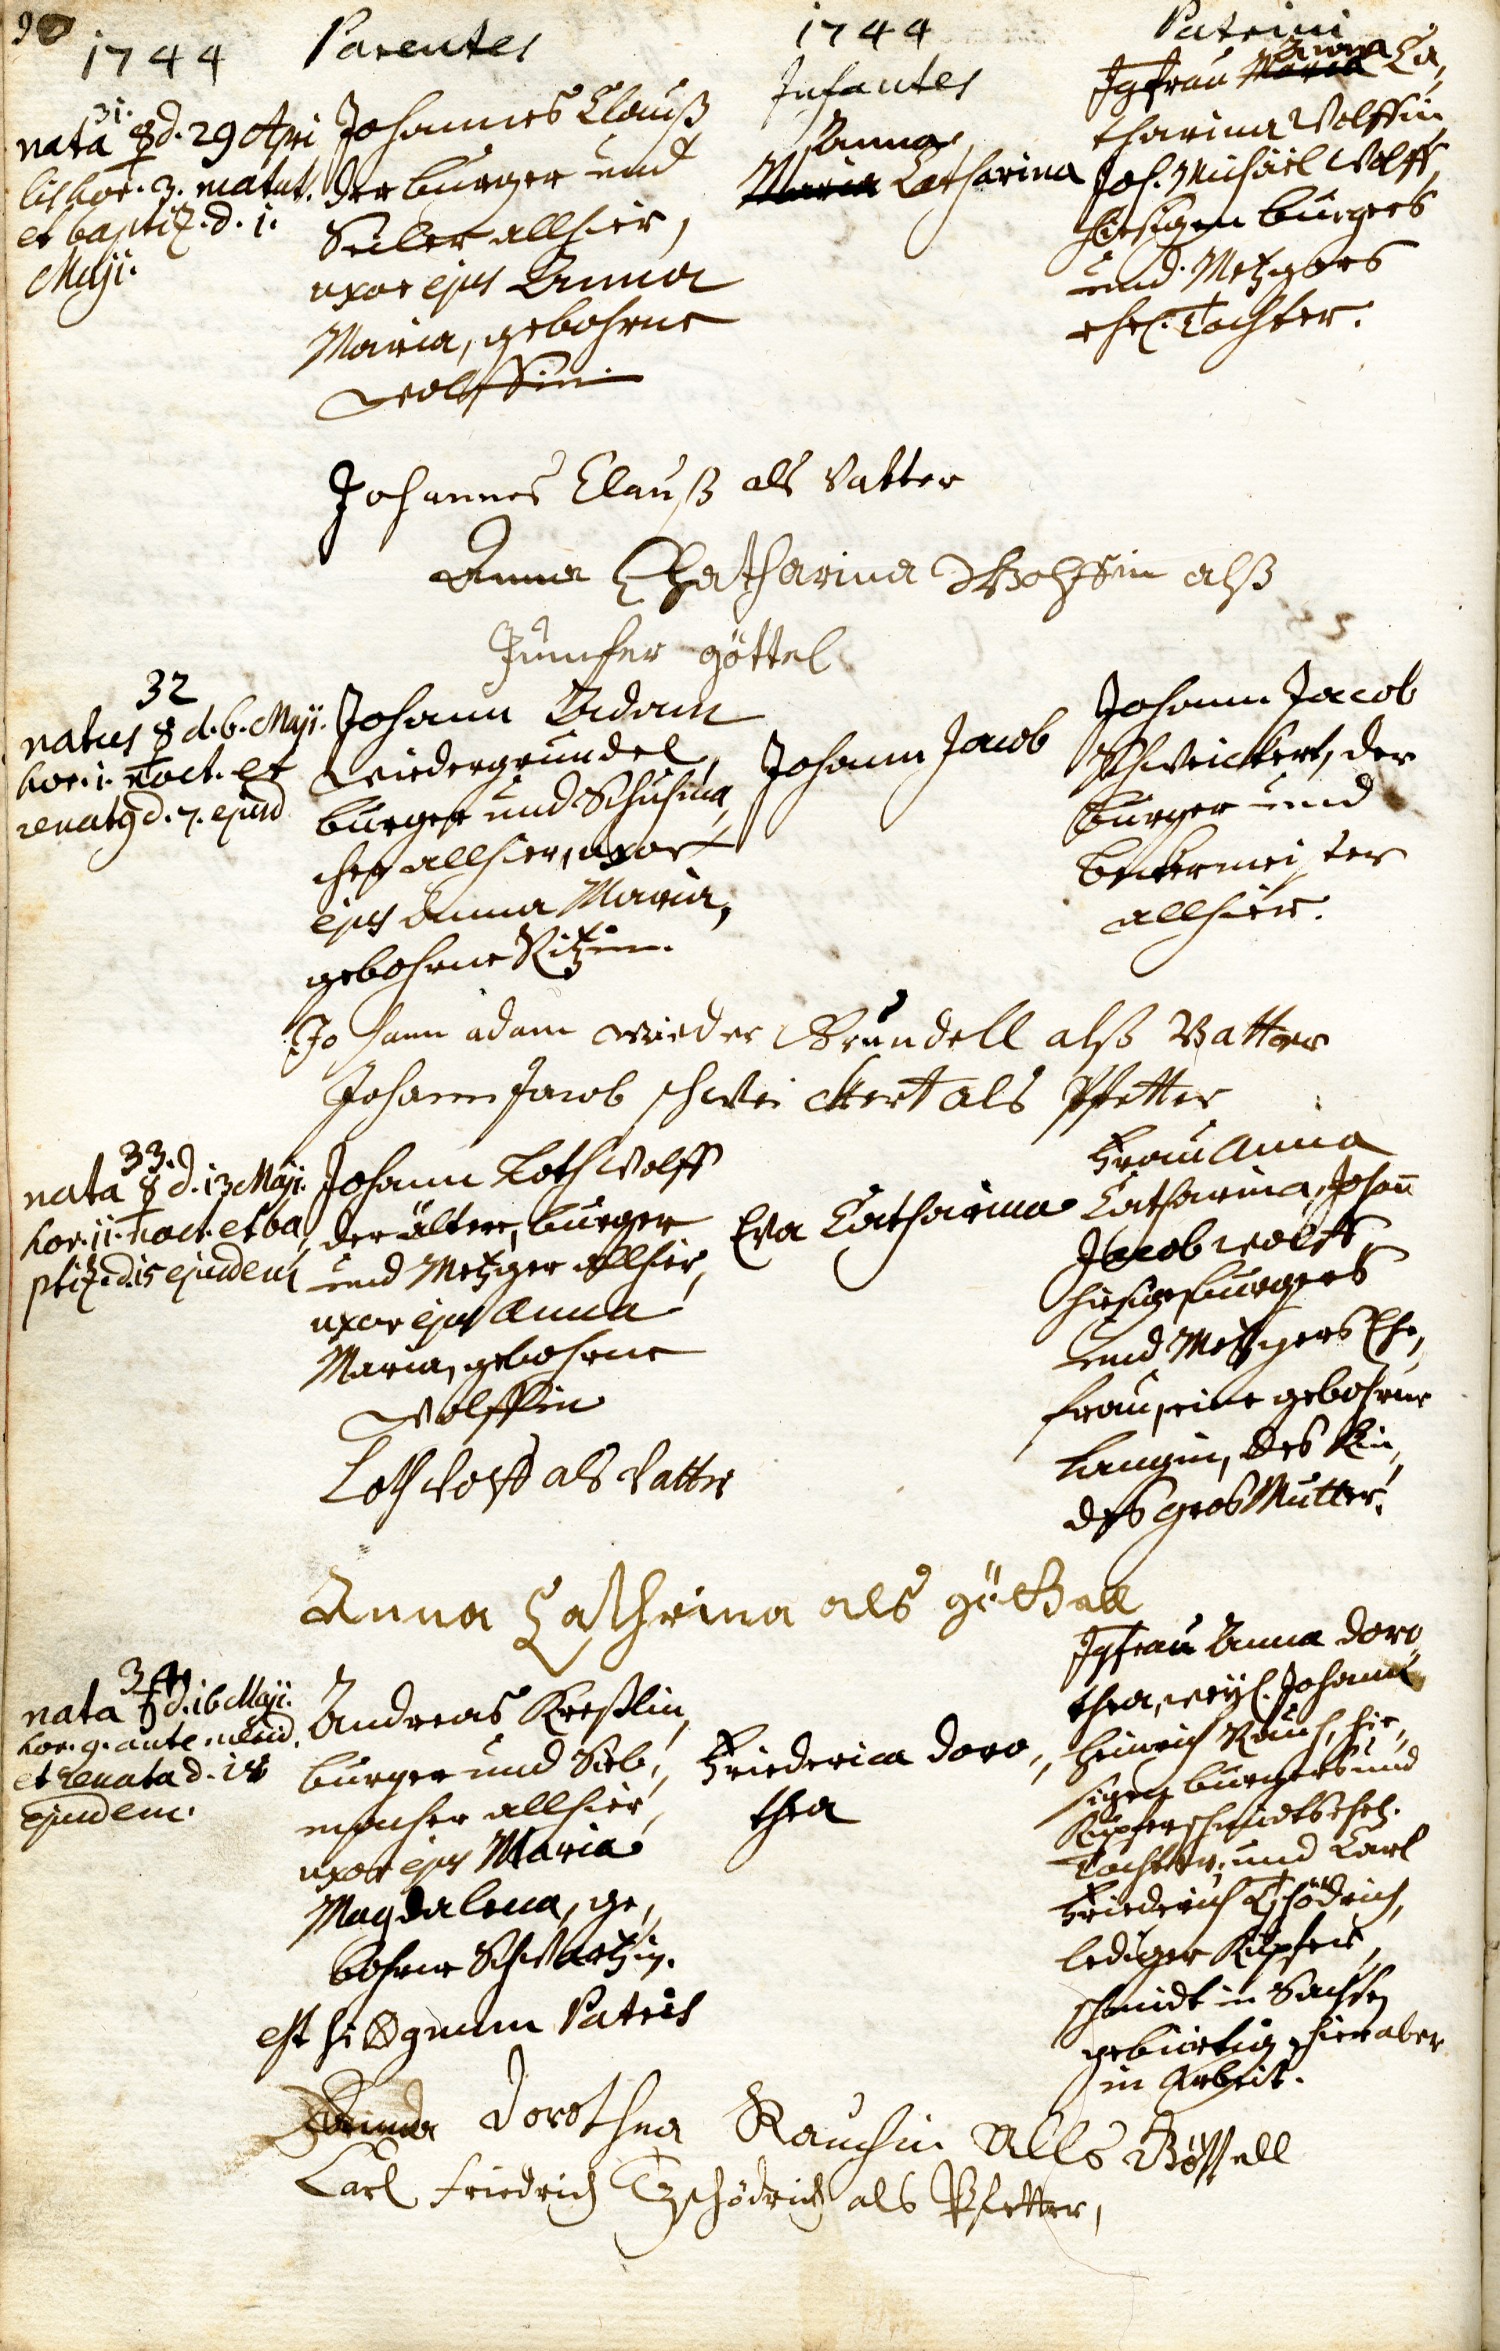 90
1744 Parentes 1744 Patrini
Infantes
31.
nata ☿ d. 29 Apri
lis hor. 3. matut.
et baptiz. d. 1.
Maji.
Johannes Clauß
der burger und
Seiler allhier,
uxor ejus Anna
Maria, gebohrne
Wolffin.
Anna
Maria Catharina
Anna
Jgfrau Maria Ca,
tharina Wolffin,
Joh. Michäel Wolff,
hiesigen burgers
und Metzgers
ehel. Tochter.
Johannes Clauß als Vatter
Anna Chatharina Wolffin alß
Jumfer göttel
32
natus ☿ d. 6. Maji.
hor. 1. noct. et
renatq d. 7. ejusd
Johann Adam
Wiedergründel,
burger und Schuhma,
cher allhier, uxor
ejus Anna Maria,
gebohrne Ritzin.
Johann Jacob
Johann Jacob
Schweickert, der
burger und
beckermeister
allhier.
Johann adam wieder Gründell alß Vatter
Johann Jacob schweickert als Pfetter
33.
nata ☿ d. 13 Maji.
hor. 11. noct. et ba,
ptiz. d. 15 ejusdem
Johann Loth Wolff
der ältere, burger
und Metzger allhier,
uxor ejus Anna
Maria, gebohrne
Wolffin
Eva Catharina
Frau Anna
Catharina, Johañ
Jacob Wolffs,
hiesigen burgers
und Metzgers Ehe,
frau, eine gebohrne
Langin, des Kin,
des gros Mutter.
Loth Wolff als Vatter
Anna Cathrina als göttell
34
nata ♄ d. 16 Maji.
hor. 9. ante merid.
et renata d. 18
ejusdem.
Andreas Kreßlin,
burger und Sieb,
macher allhier,
uxor ejus Maria
Magdalena, ge,
bohrne Schwartzin.
Friederica Doro,
thea
Jgfrau Anna Doro,
thea, weyl. Johann
Heinrich Rauch, hie,
sigen burgers und
Kupferschmidts ehel.
Tochter, und Carl
Friederich Tzschödrich,
lediger Kupfer,
schmidt in Sachsen
gebürtig, hier aber
in Arbeit.
est si⊗gnum Patris
Anna Dorothea Rauchin Alls Göttell
Carl Friedrich Tzschödrich als Pfetter,